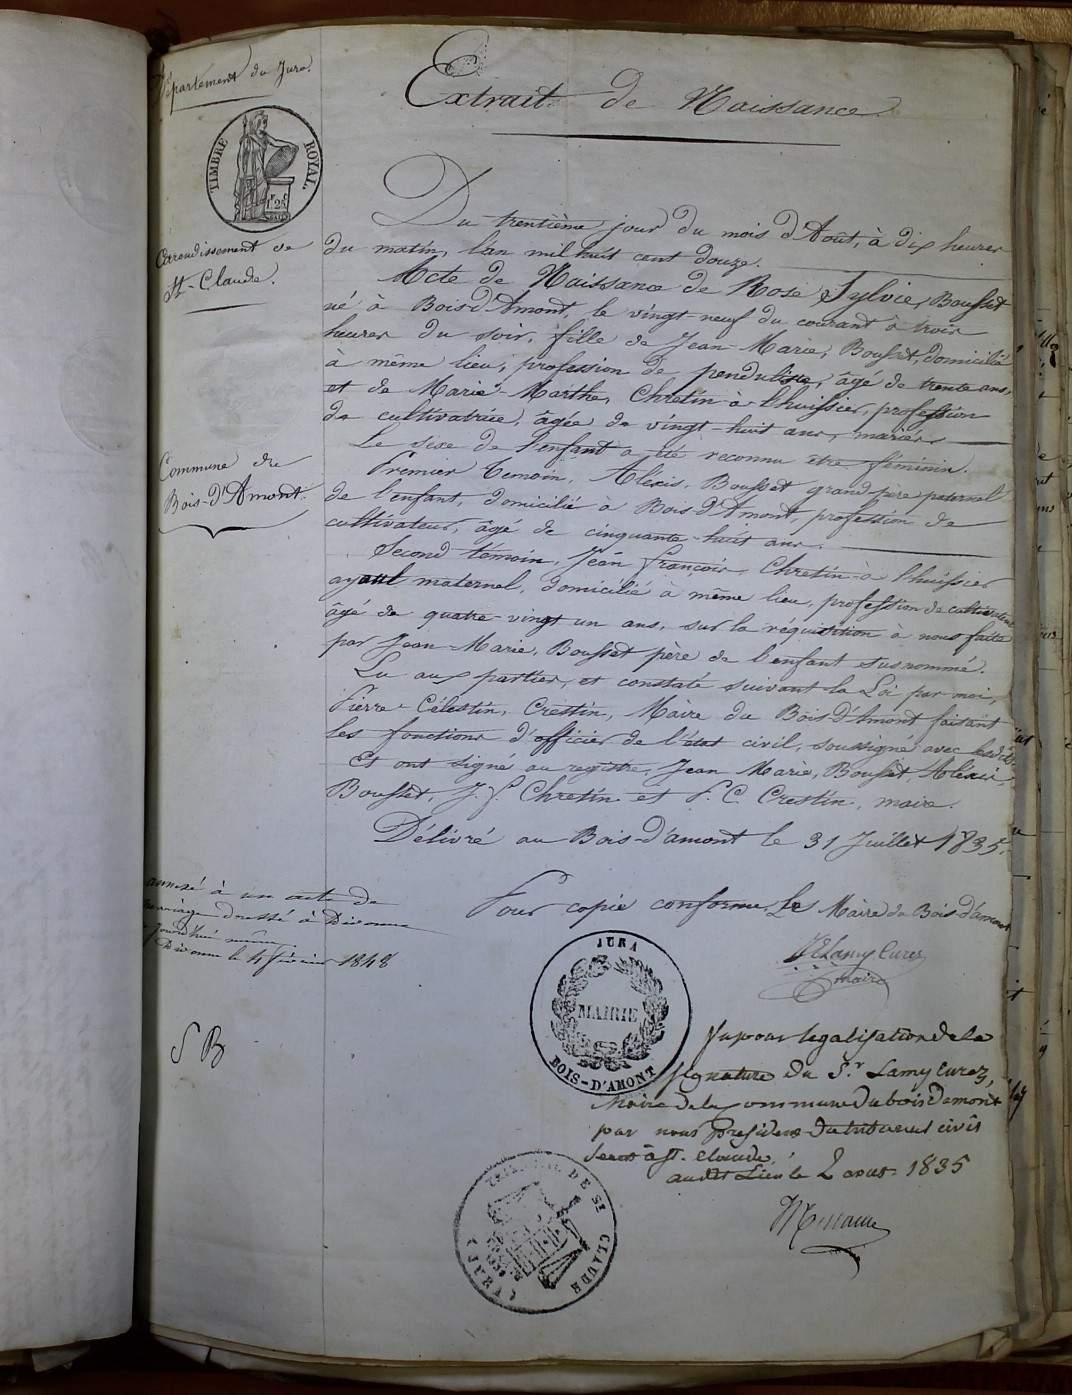 Département du Jura.
Extrait de Naissance.
TIMBRE ROYAL.
Arrondissement de
St-Claude.
Du trentième jour du mois d'Août, à dix heures
du matin, l'an mil huit cent douze.
Acte de Naissance de Rose Sylvie, Bousset
né à Bois-d'Amont, le vingt-neuf du courant à trois
heures du soir, fille de Jean-Marie, Bousset, domicilié
à même lieu, profession de penduliste, âgé de trente ans,
et de Marie-Marthe, Chretin-à-l'huissier, profession
de cultivatrice, âgée de vingt-huit ans, mariés
Le sexe de l'enfant a été reconnu être féminin.
Commune de
Bois-d'Amont.
Premier témoin, Alexis, Bousset grand père paternel
de l'enfant, domicilié à Bois-d'Amont, profession de
cultivateur, âgé de cinquante-huit ans.
Second témoin, Jean françois, Chretin-à-l'huissier
ayaul maternel, domicilié à même lieu, profession de cultivateur
âgé de quatre-vingt un ans, sur la réquisition à nous faite
par Jean-Marie, Bousset père de l'enfant susnommé.
Lu aux parties, et constaté suivant la Loi par moi,
Pierre-Célestin, Crestin, Maire du Bois-d'Amont faisant
les fonctions d'officier de l'état civil, soussigné avec
Et ont signé au registre, Jean Marie, Bousset, Alexis,
Bousset, J. f. Chretin et P. C. Crestin, maire.
Délivré au Bois-d'amont le 31 Juillet 1835.
Pour copie conforme, Le Maire du Bois-d'amont
Lamy Curez
maire
annexé à un acte de
mariage dressé à Divonne
jourd'hui même
Divonne le 4 février 1848
S B
JURA
MAIRIE
BOIS-D'AMONT
Vu pour legalisation de la
signature du Sr. Lamy Curez,
Maire de la Commune du bois damont
par nous President du tribunal civil
seant à St. Claude,
audit Lieu le 2 aout 1835
DE ST CLAUDE
(JURA)